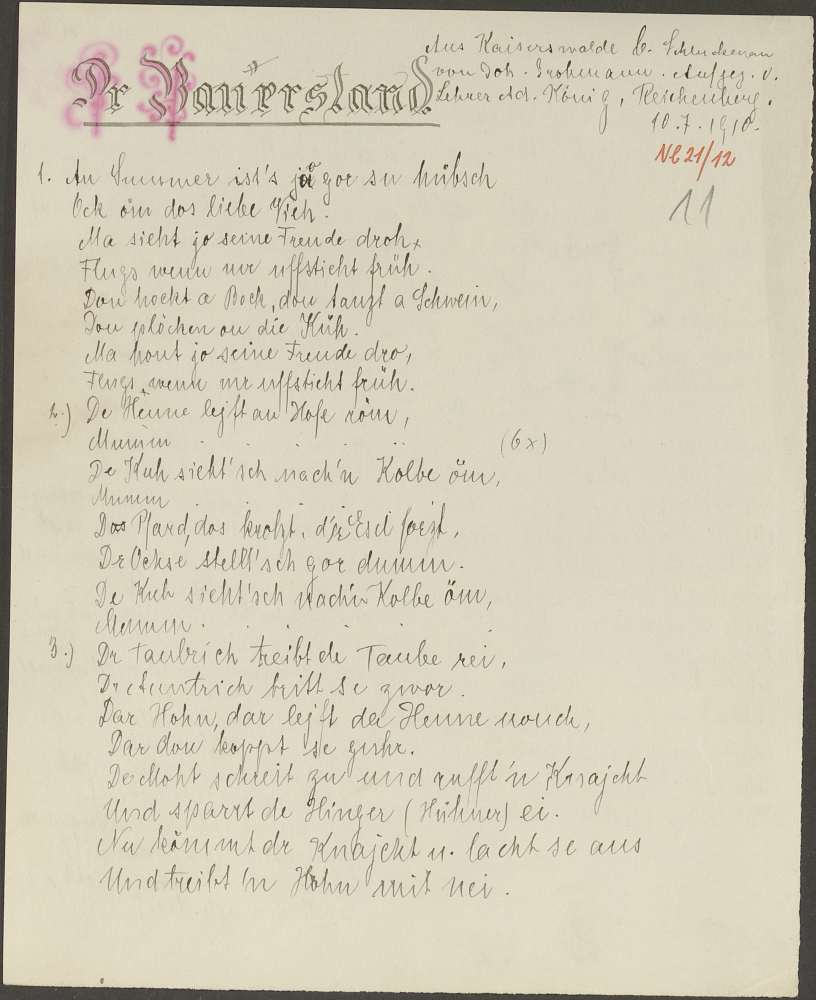 Dr Bauersland.
Aus Kaiserswalde b. Schluckenau
von Joh. Grohmann. Aufgez. v.
Lehrer Ad. König, Reichenberg.
10.7.1910.
Nl 21/12
11
1. An Summer ist's jå gor su hübsch
Ock öm dos liebe Vieh.
Ma sieht jo seine Freude droh,
Flugs wenn mr uffsticht früh.
Dou hockt a Bock, dou tanzt a Schwein,
Dou plöcken ou die Küh.
Ma hout jo seine Freude dro,
Flugs, wenn mr uffsticht früh.
2.) De Henne lejft an Hofe röm,
Mumm . . . . (6x)
De Kuh sieht'sch nach'n Kolbe öm,
Mumm . . . .
Dos Pfard, dos krotzt, dr Esel forzt,
Dr Ockse stellt'sch gor dumm.
De Kuh sieht'sch nach'n Kolbe öm,
Mumm . . . .
3.) Dr Taubrich treibt de Taube rei,
Dr Auntrich tritt se zwor.
Dar Hohn, dar lejft der Henne nouch,
Dar dou koppt se guhr.
De Moht schreit zu und rufft 'n Knajcht
Und sparrt de Hinger (Hühner) ei.
Nu kömmt dr Knajcht u. lacht se aus
Und treibt 'n Hohn mit nei.